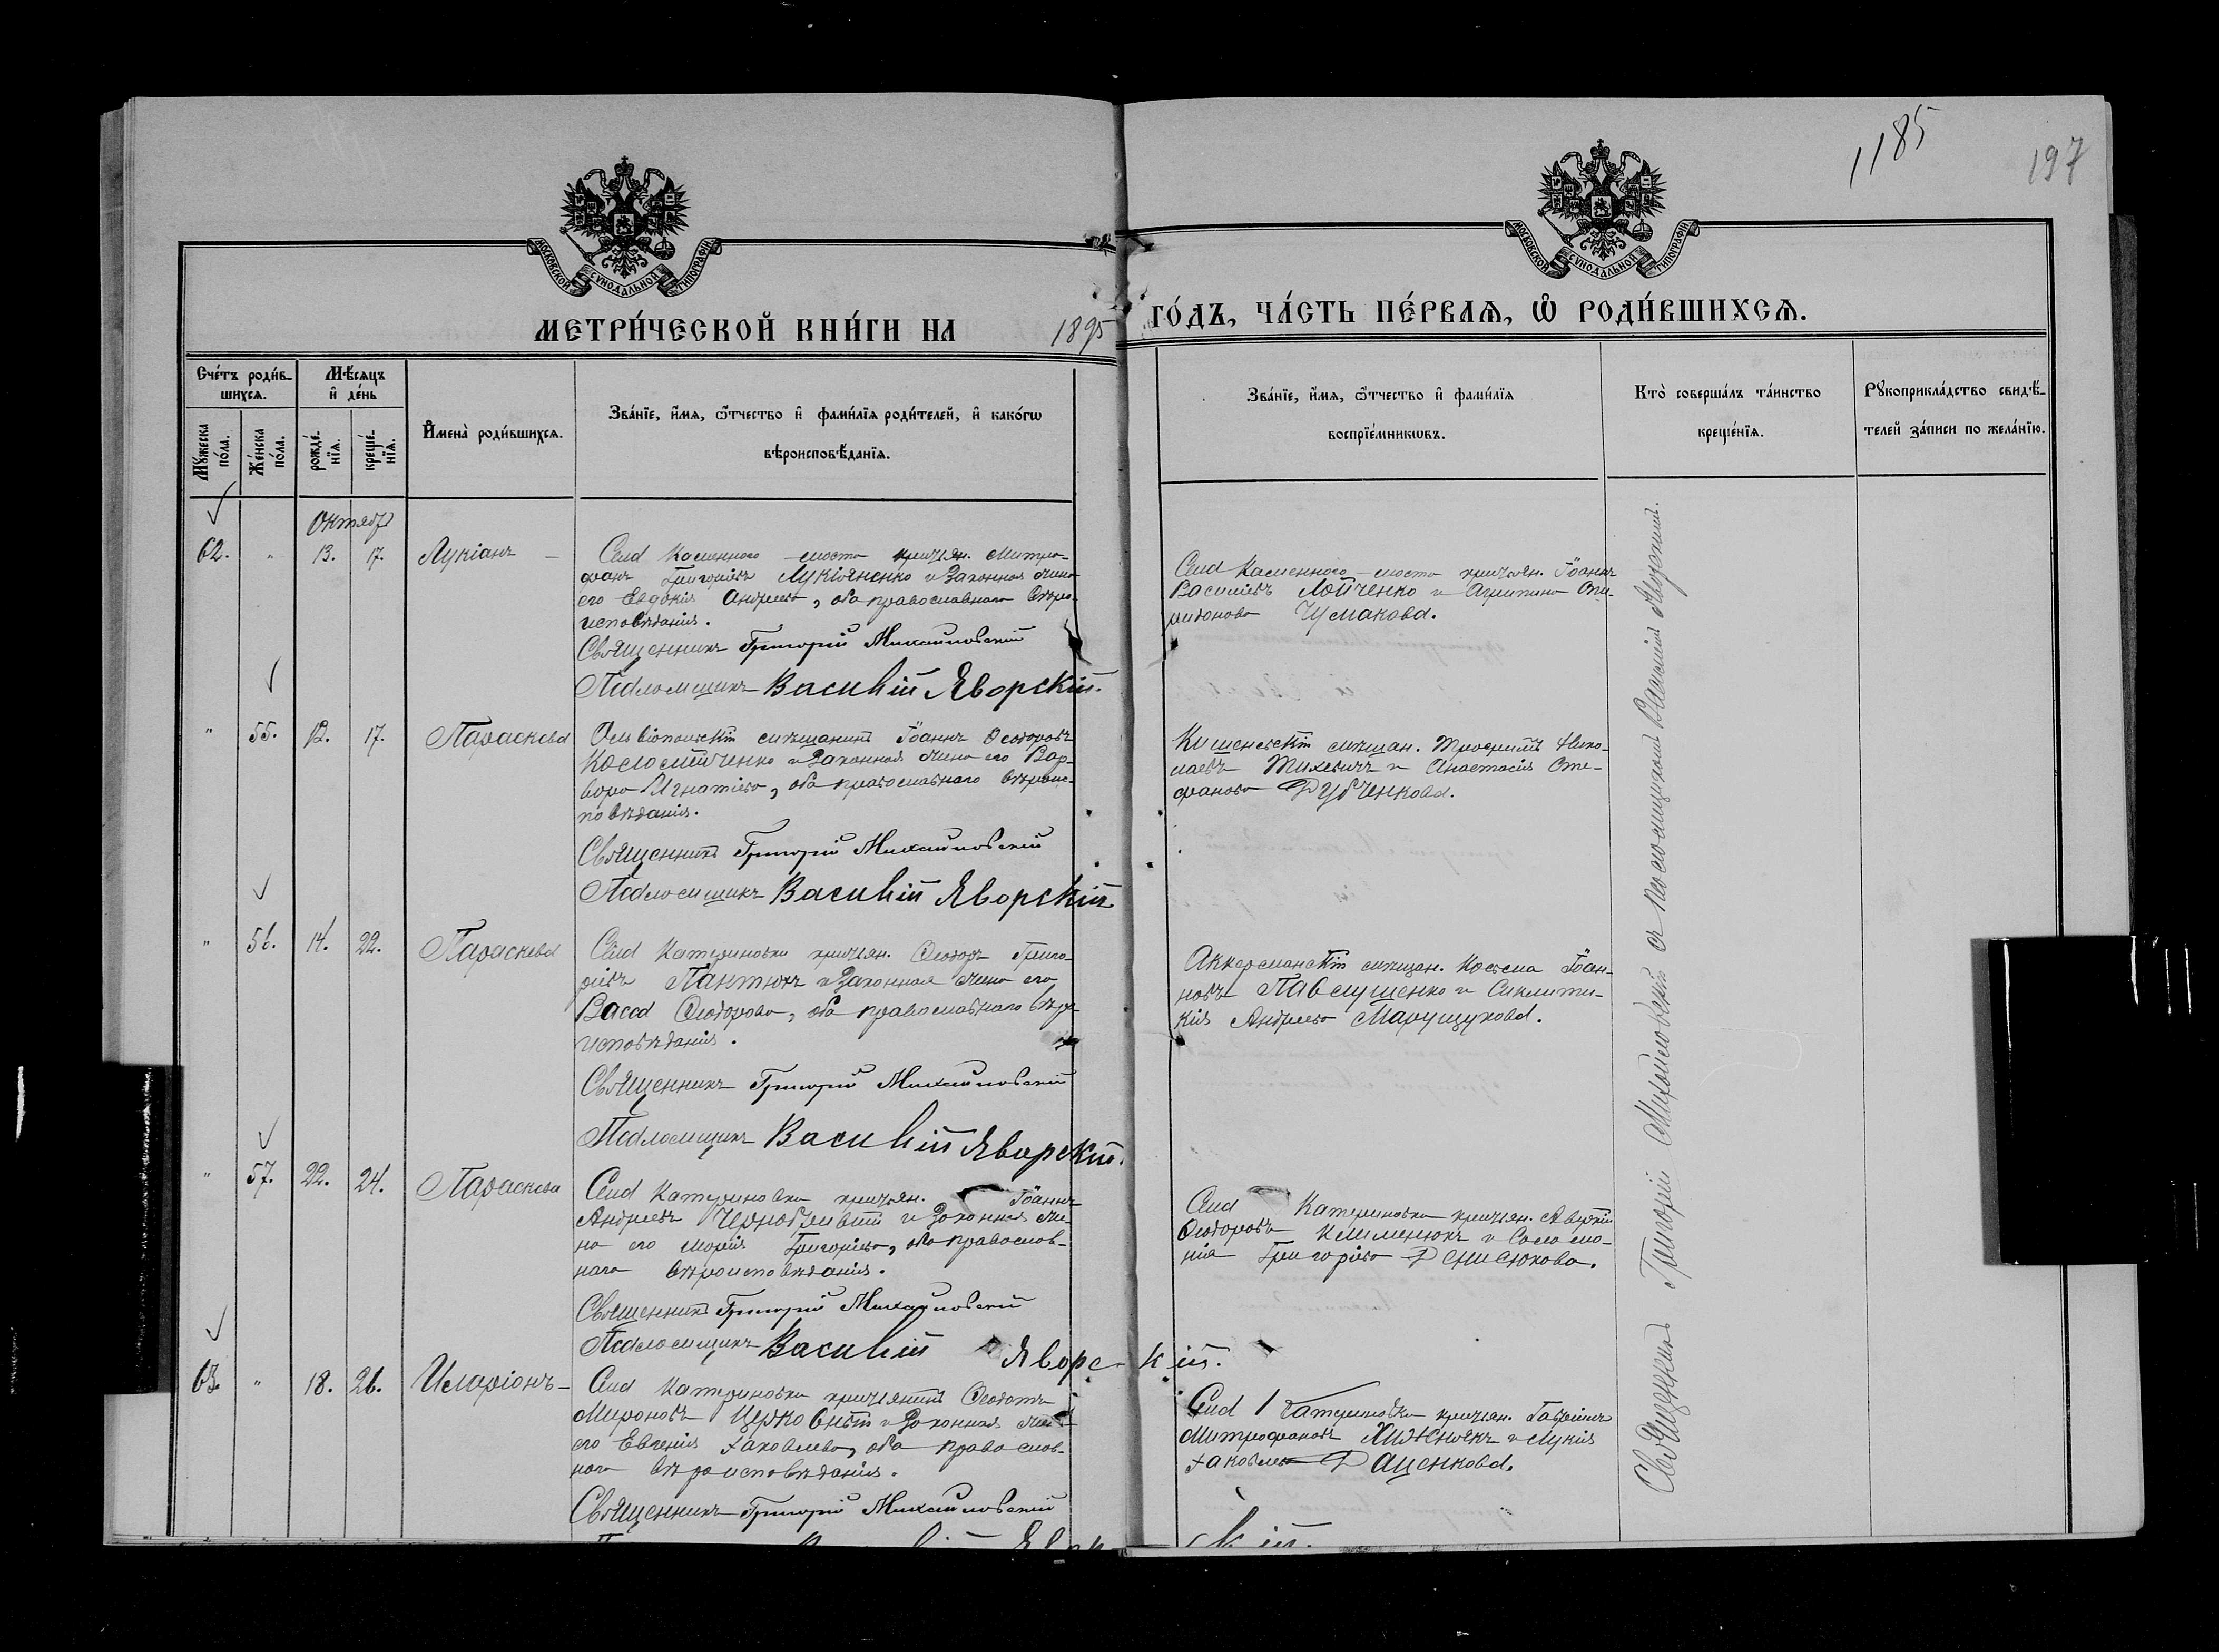 1185
197
МОСКОВСКОЙ СУНОДАЛЬНОЙ ТИПОГРАФІИ
МОСКОВСКОЙ СУНОДАЛЬНОЙ ТИПОГРАФІИ
МЕТРИ́ЧЕСКОЙ КНИ́ГИ НА 1895 ГО́ДЪ, ЧА́СТЬ ПЕ́РВАѦ, Ѡ РОДИ́ВШИХСѦ.
Сче́тъ роди́в-
шихсѧ.
Мꙋ́жеска по́ла.
Же́нска по́ла.
Мѣ́сѧцъ и де́нь
рожде́-
нїѧ.
креще́-
нїѧ.
Имена̀ роди́вшихсѧ.
Зва́нїе, и́мѧ, ѻ́тчество и фами́лїѧ роди́телей, и како́гѡ
вѣроисповѣ́данїѧ.
Зва́нїе, и́мѧ, ѻ́тчество и фами́лїѧ
воспрїе́мникѡвъ.
Кто̀ соверша́лъ та́инство
креще́нїѧ.
Рꙋкоприкла́дство свидѣ́-
телей за́писи по жела́нїю.
Октябр
62. " 13. 17. Лукіанъ –
Села Каменного-моста крестьян. Митро-
фанъ Григоріевъ Лукіяненко и законная жена
его Евдокія Андреева, оба православнаго вѣро-
исповѣданія.
Священникъ Григорій Михайловскій
Псаломщикъ Василій Яворскій.
Села Каменного-моста крестьян. Іоаннъ
Василіевъ Лойченко и Агрипина Спи-
ридонова Чумакова.
" 55. 12. 17. Параскева
Ольвіопольскій мѣщанинъ Іоаннъ Ѳеодоровъ
и законная жена его Вар-
вара Игнатіева, оба православнаго вѣроис-
повѣданія.
Священникъ Григорій Михайловскій
Псаломщикъ Василій Яворскій
мѣщан. Трофимъ Нико-
лаевъ и Анастасія Сте-
фанова Дубченкова.
" 56. 14. 22. Параскева
Села Катериновки крестьян. Ѳеодоръ Григо-
ріевъ Пантюкъ и законная жена его
Васса Ѳеодорова, оба православнаго вѣро-
исповѣданія.
Священникъ Григорій Михайловскій
Псаломщикъ Василій Яворскій.
Аккерманскій мѣщан. Косьма Іоан-
новъ Павлущенко и Синклити-
кія Андреева Марущукова.
" 57. 22. 24. Параскева
Села Катериновки крестьян. Іоаннъ
Андреевъ Чернобривый и законная же-
на его Марія Григоріева, оба православ-
наго вѣроисповѣданія.
Священникъ Григорій Михайловскій
Псаломщикъ Василій Яворс-кій.
Села Катериновки крестьян. Аверкій
Ѳеодоровъ Клименюкъ и Соломо-
нія Григоріева Денисюкова.
63. " 18. 26. Иларіонъ –
Села Катериновки крестьянинъ Ѳеодотъ
Мироновъ Церковный и законная жена
его Евгенія Яковлева, оба православ-
наго вѣроисповѣданія.
Священникъ Григорій Михайловскій
Села Катериновки крестьян. Гавріилъ
Митрофановъ и Лукія
Яковлева Дащенкова.
Священникъ Григорій Михайловскій съ псаломщикомъ Василіемъ Яворскимъ.